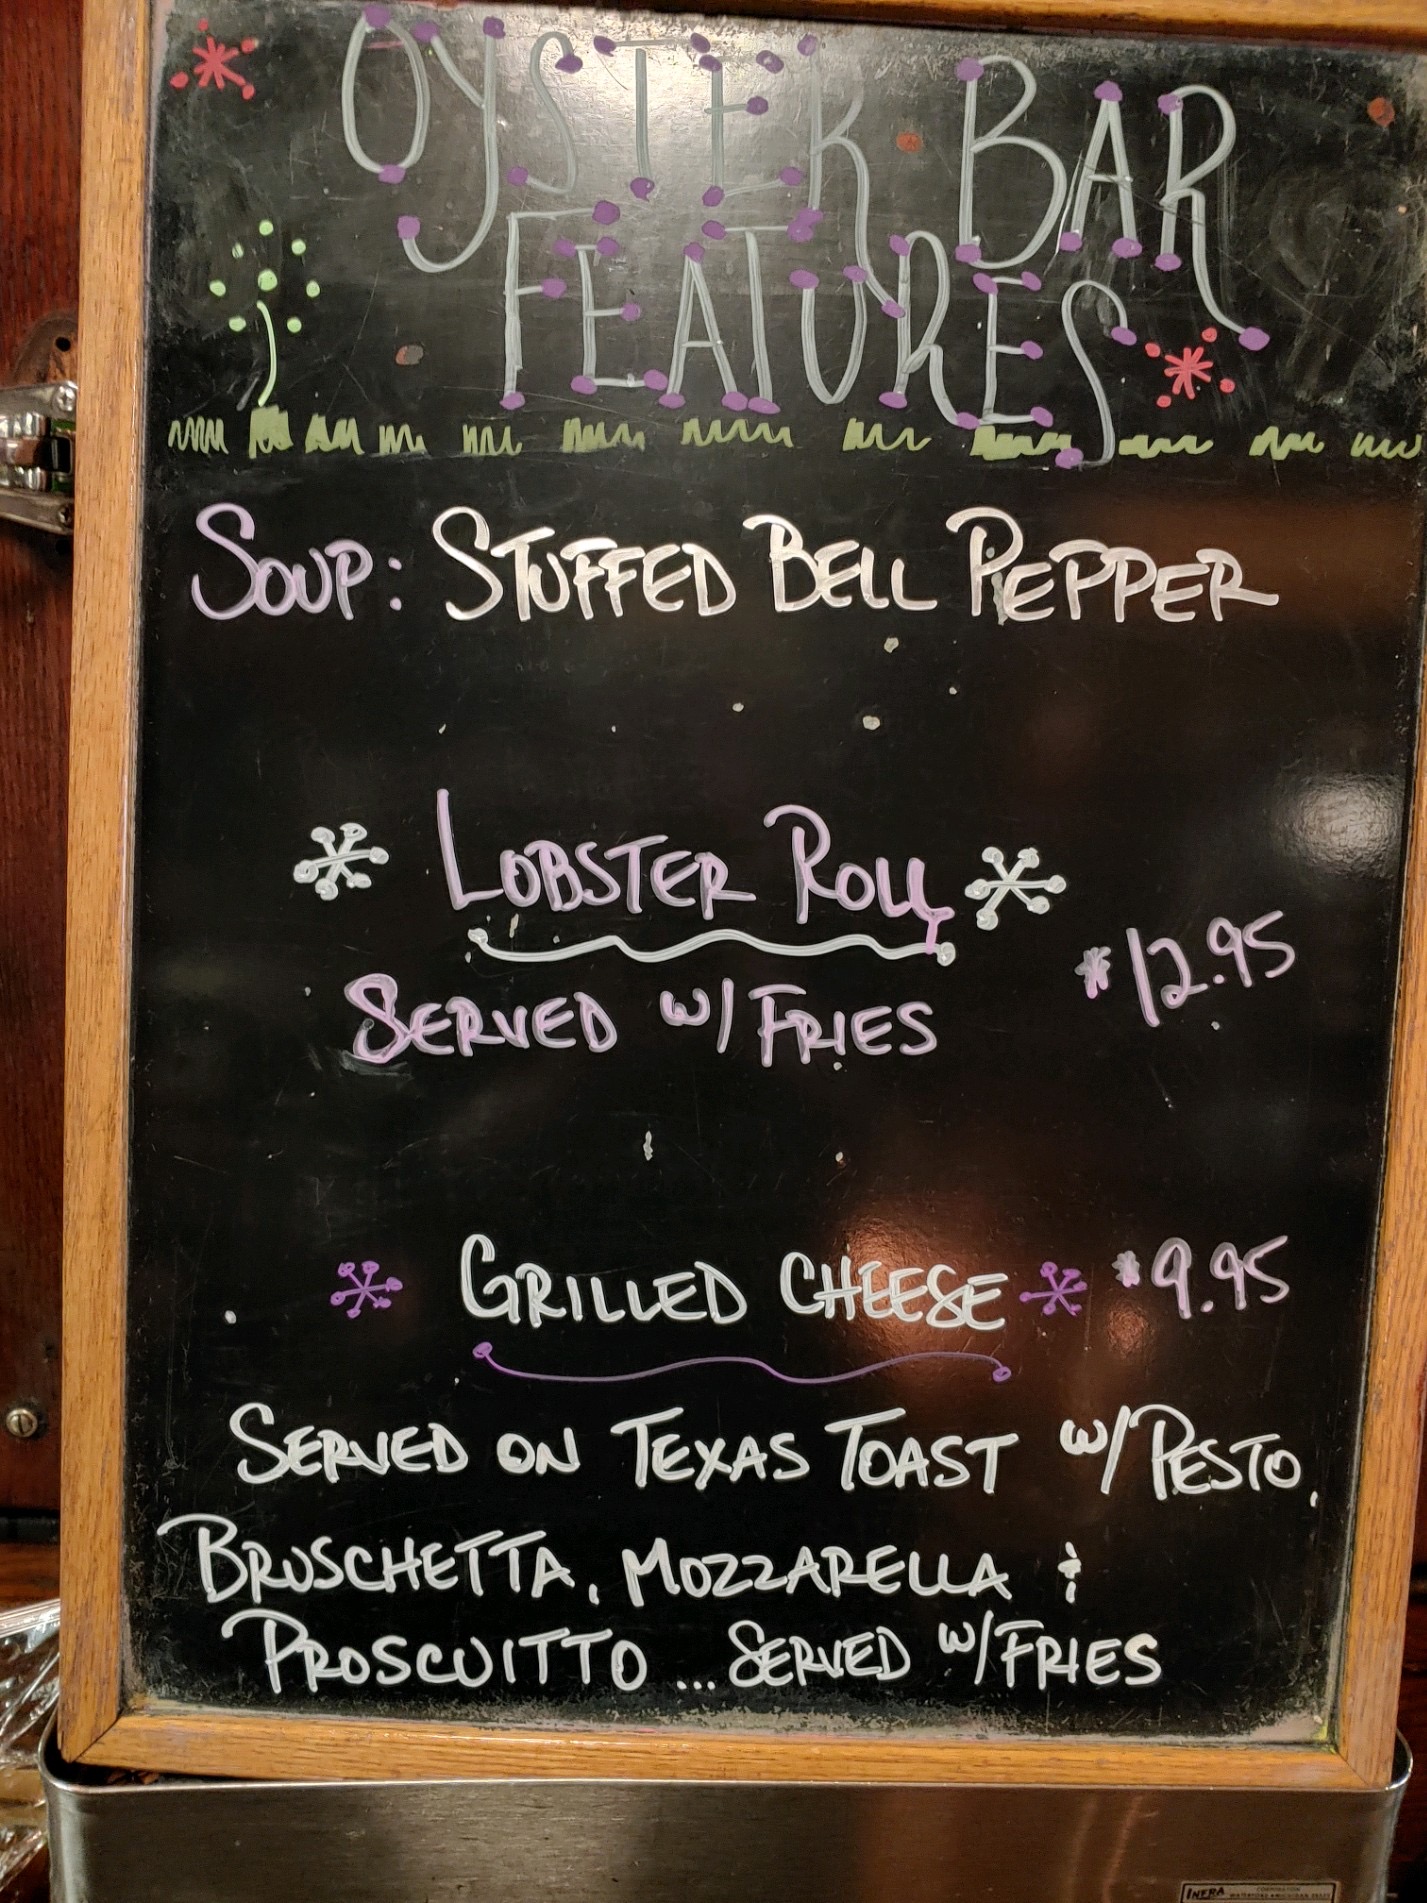 OYSTER BAR
FEATURES
SOUP: STUFFED BELL PEPPER
LOBSTER ROLL
$12.95
SERVED W/ FRIES
GRILLED CHEESE $9.95
SERVED ON TEXAS TOAST W/ PESTO,
BRUSCHETTA, MOZZARELLA &
PROSCUITTO ... SERVED W/ FRIES
CORPORATION